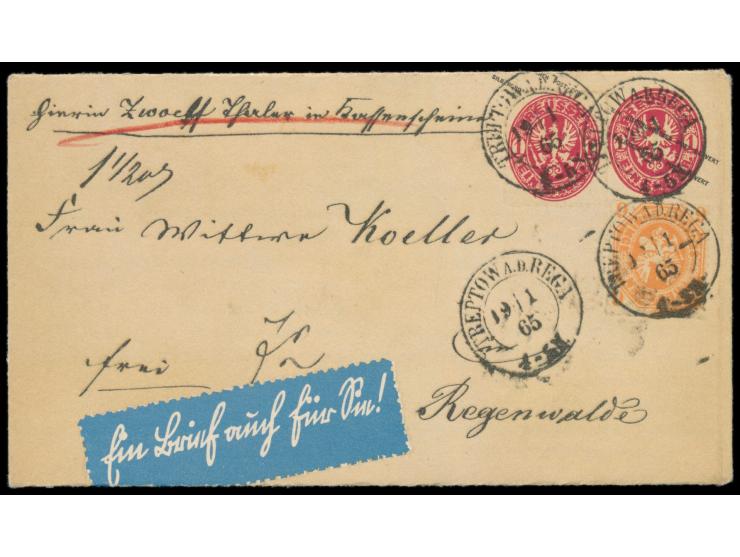 Hierin Zwoelf Thaler in Kassenscheine
1 1/2
Frau Wittwe Koeller
frei
Regenwalde
TREPTOW A.D. REGA
19 11
65
4-5N
TREPTOW A.D. REGA
65
4-5N
TREPTOW A.D. REGA
65
1
1
WERT
Ein Brief auch für Sie!